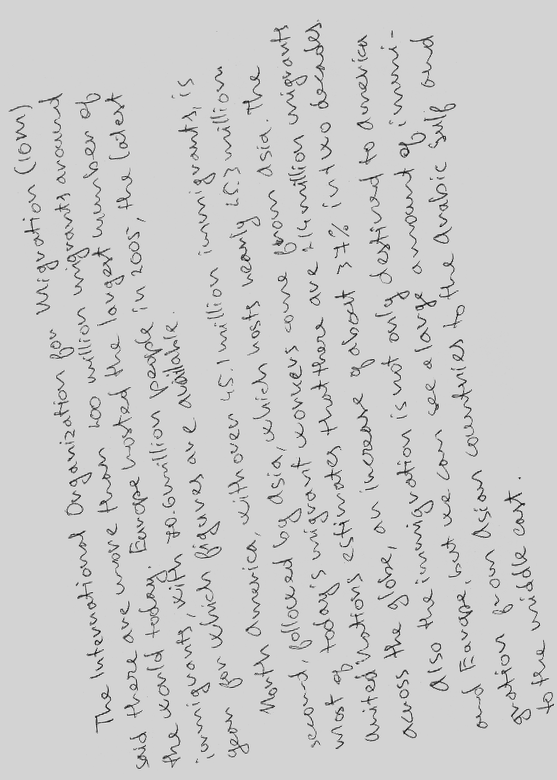 The International Organization for Migration (IOM)
said there are more than 200 million migrants around
the world today. Europe hosted the largest number of
immigrants, with 70.6 million people in 2005, the latest
year for which figures are available.
North America, with over 45.1 million immigrants, is
second, followed by Asia, which hosts nearly 25.3 million
most of today's migrant workers come from Asia. The
united Nations estimates that there are 214 million migrants
across the globe, an increase of about 37% in two decades.
Also the immigration is not only destined to America
and Europe, but we can see a large amount of immi-
gration from Asian countries to the Arabic Gulf and
to the middle east.